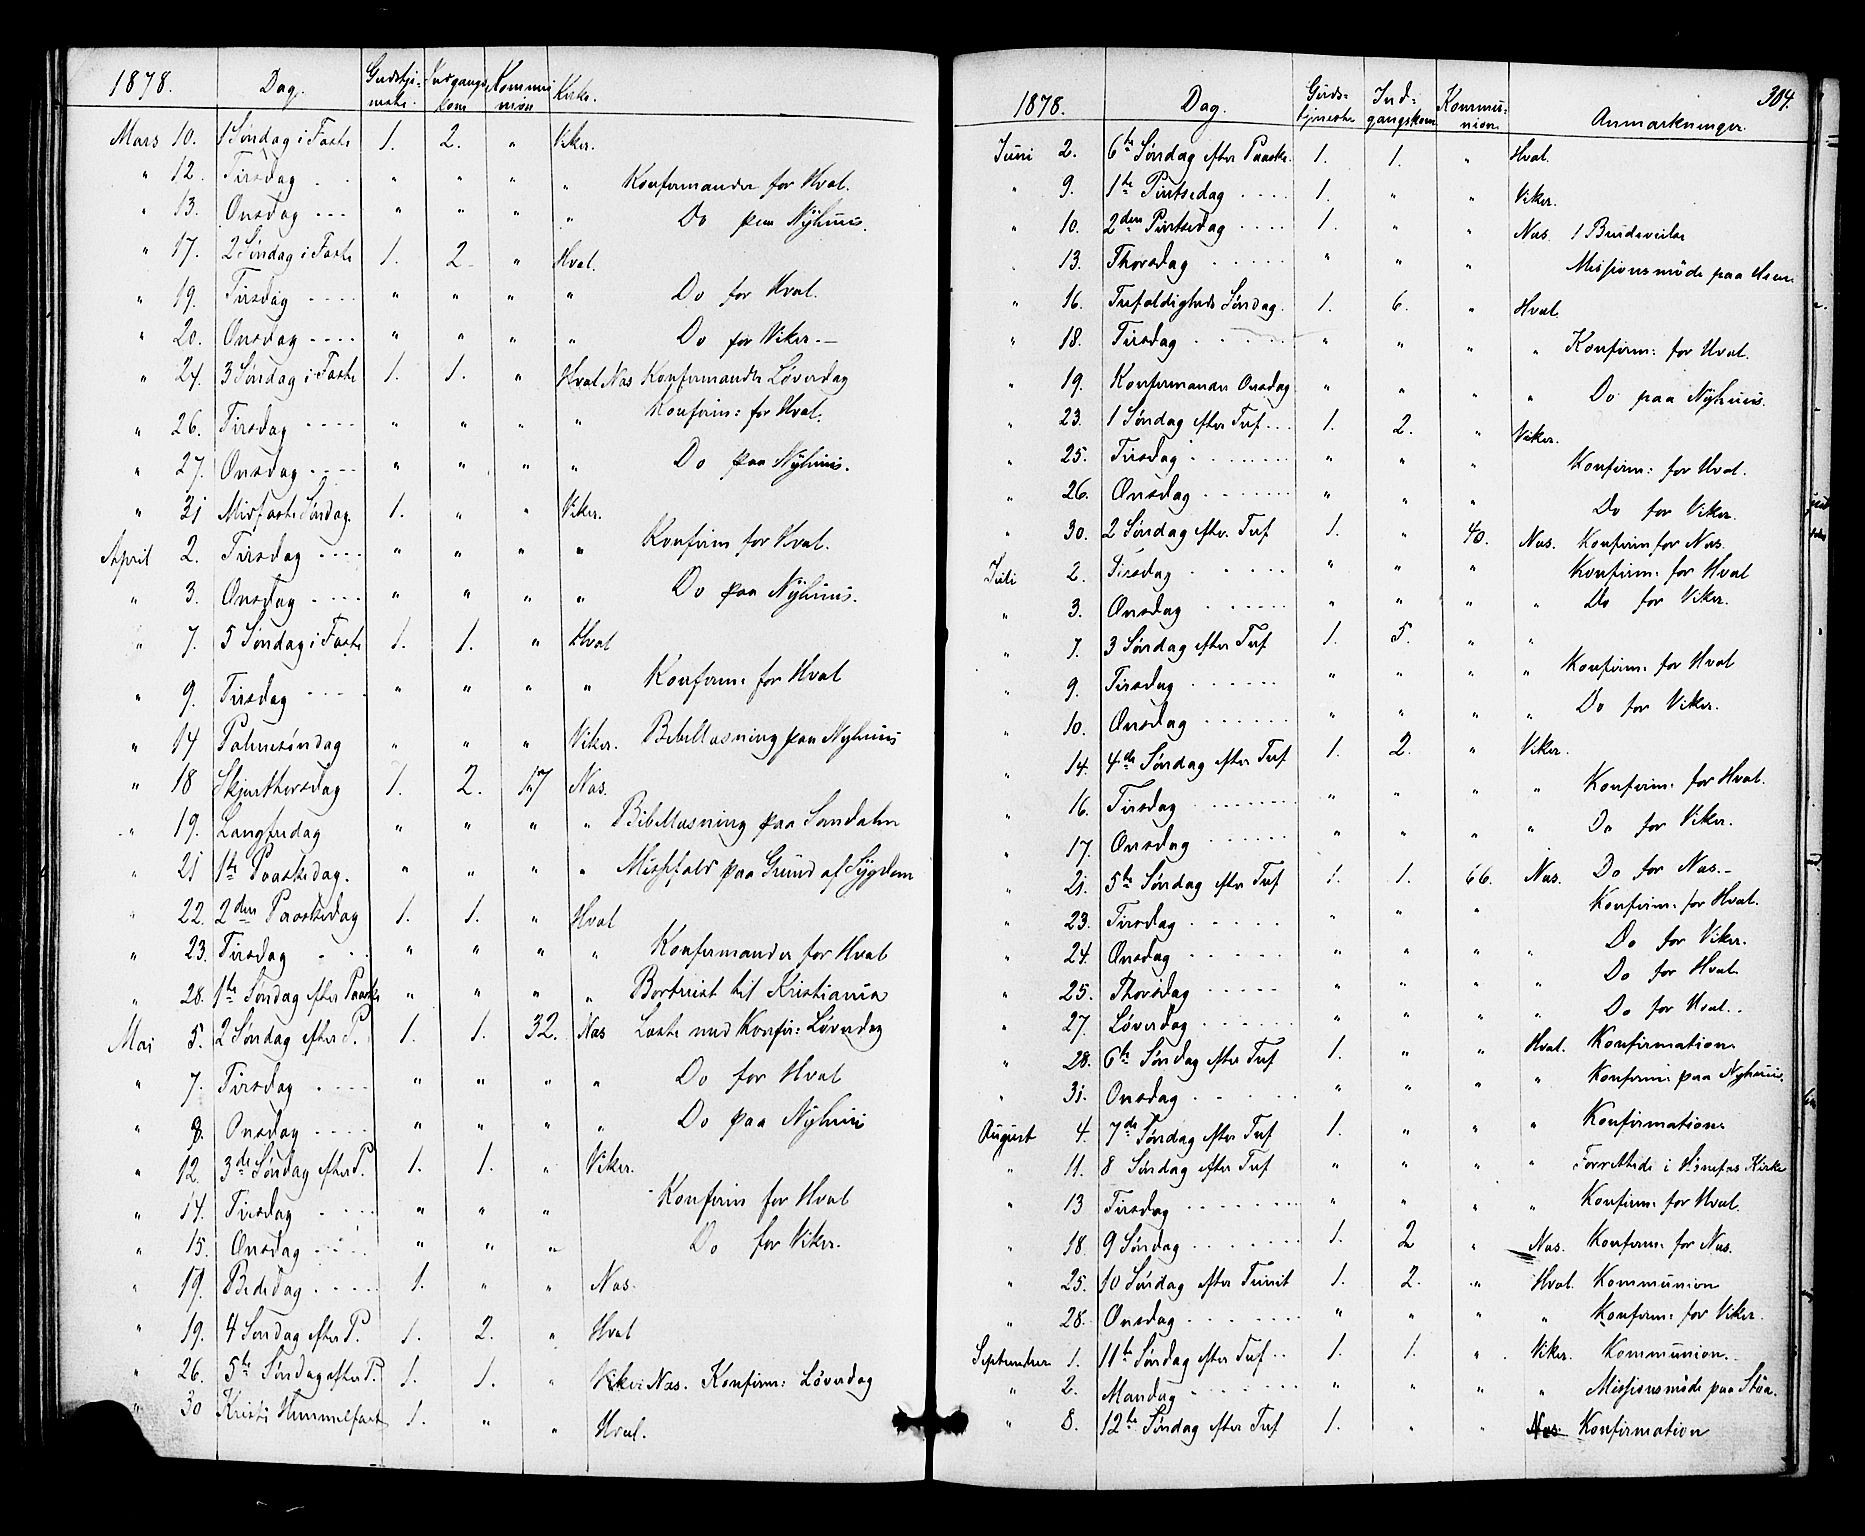 1878. Dag. Gudstjeneste. Indgangskone Kommunion Kirke.
Mars 10. 1 Søndag i Faste 1. 2. " Viker.
" 12. Tirsdag . . " " " " Konfermander for Hval.
" 13. Onsdag . . . " " " " Do paa Nÿhuus.
" 17. 2 Søndag i Faste 1. 2 " Hval.
" 19. Tirsdag . . . . " " " " Do for Hval.
" 20. Onsdag . . . . " " " " Do for Viker. –
" 24. 3 Søndag i Faste 1. 1. " Hval Nas Konfermander Løverdag
" 26. Tirsdag . . . . " " " " Konfirm: for Hval.
" 27. Onsdag . . . . " " " " Do paa Nÿhuus.
" 31 Midfaste Søndag. 1. " " Viker.
April 2. Tirsdag . . . . " " " " Konfirm for Hval.
" 3. Onsdag . . . . " " " " Do paa Nÿhuus.
" 7. 5 Søndag i Faste 1. 1. " Hval
" 9. Tirsdag . . . . " " " " Konferm: for Hval
" 14 Palmesøndag " " " Viker. Bibellæsning paa Nyhuus
" 18 Skjærthorsdag 1. 2. 17 Nas.
" 19. Langfredag " " " " Bibellæsning paa Sandalen
" 21 1te Paaskedag. " " " " Messefald paa Grund af Sÿgdom
" 22. 2den Paaskedag 1. 1. " Hval
" 23. Tirsdag . . . " " " " Konfermander for Hval
" 28. 1te Søndag efter Paaske " " " " Bortreist til Kristiania
Mai 5. 2 Søndag efter P. 1. 1. 32. Nas Læste med Konfir: Løverdag
" 7. Tirsdag . . . . " " " " Do for Hval
" 8. Onsdag . . . . " " " " Do paa Nÿhuus
" 12. 3de Søndag efter P. 1. 1. " Viker.
" 14. Tirsdag . . . . " " " Konfirm for Hval
" 15. Onsdag . . . . " " " Do for Viker.
" 19. Bededag . . . . 1. " " Nas.
" 19. 4 Søndag efter P. 1. 2. " Hval
" 26. 5te Søndag efter P. 1. 1. " Viker Nas. Konfirm: Løverdag
" 30 Kristi Himmelfart 1. " " Hval.
304.
1878. Dag. Gudstjeneste Indgangskone Kommunion Anmærkninger.
Juni 2. 6te Søndag efter Paaske. 1. 1. " Hval.
" 9. 1te Pintsedag . . . . 1. " " Viker.
" 10. 2den Pintsedag . . . . 1. " " Nas. 1 Brudevielse
" 13. Thorsdag . . . . . " " " Missionsmöde paa
" 16. Trefoldigheds Søndag. 1. 6. " Hval.
" 18. Tirsdag . . . . . " " " " Konfirm: for Hval.
" 19. Konfermander Onsdag " " " " Do paa Nÿhuus.
" 23. 1 Søndag efter Tref . . . 1. 2. " Viker.
" 25. Tirsdag . . . . . . " " " Konfirm: for Hval.
" 26. Onsdag . . . . . . " " " Do for Viker.
" 30. 2 Søndag efter Tref 1. " 40. Nas. Konfirm for Nas.
Juli 2. Tirsdag . . . . . " " " Konfirm: for Hval
" 3. Onsdag . . . . . " " " " Do for Viker.
" 7. 3 Søndag efter Tref 1. 5. " "
" 9. Tirsdag . . . . . . " " " " Konfirm: for Hval
" 10. Onsdag . . . . . . " " " " Do for Viker.
" 14. 4de Søndag efter Tref 1. 2. " Viker.
" 16. Tirsdag . . . . . . " " " " Konfirm: for Hval.
" 17. Onsdag . . . . . . " " " " Do for Viker.
" 21. 5te Søndag efter Tref 1. 1. 66. Nas. Do for Nas. –
" 23. Tirsdag . . . . . " " " Konfirm: for Hval.
" 24. Onsdag . . . . . " " " " Do for Viker.
" 25. Thorsdag . . . . . " " " " Do for Hval
" 27. Løverdag . . . . . " " " " Do for Hval. .
" 28. 6te Søndag efter Tref 1. " " Hval. Konfirmation
" 31. Onsdag . . . . . " " " " Konfirm: paa Nyhuus.
August 4. 7de Søndag efter Tref 1. " " " Konfirmation
" 11. 8 Søndag efter Tref " " " " Forrettede i Hønefos Kirke
" 13 Tirsdag . . . . . . " " " " Konfirm: for Hval.
" 18. 9 Søndag . . . . . . 1. 2 " Nas. Konfirm: for Nas.
" 25. 10 Søndag efter Trinit 1. 2. " Hval. Kommunion
" 28. Onsdag . . . . . . " " " " Konfirm: for Viker.
September 1. 11te Søndag efter Tref . . 1. 1. " Viker. Kommunion. .
" 2. Mandag . . . . . . " " " " Missionsmöde paa
" 8. 12te Søndag efter Tref 1. " " Nas. Konfirmation